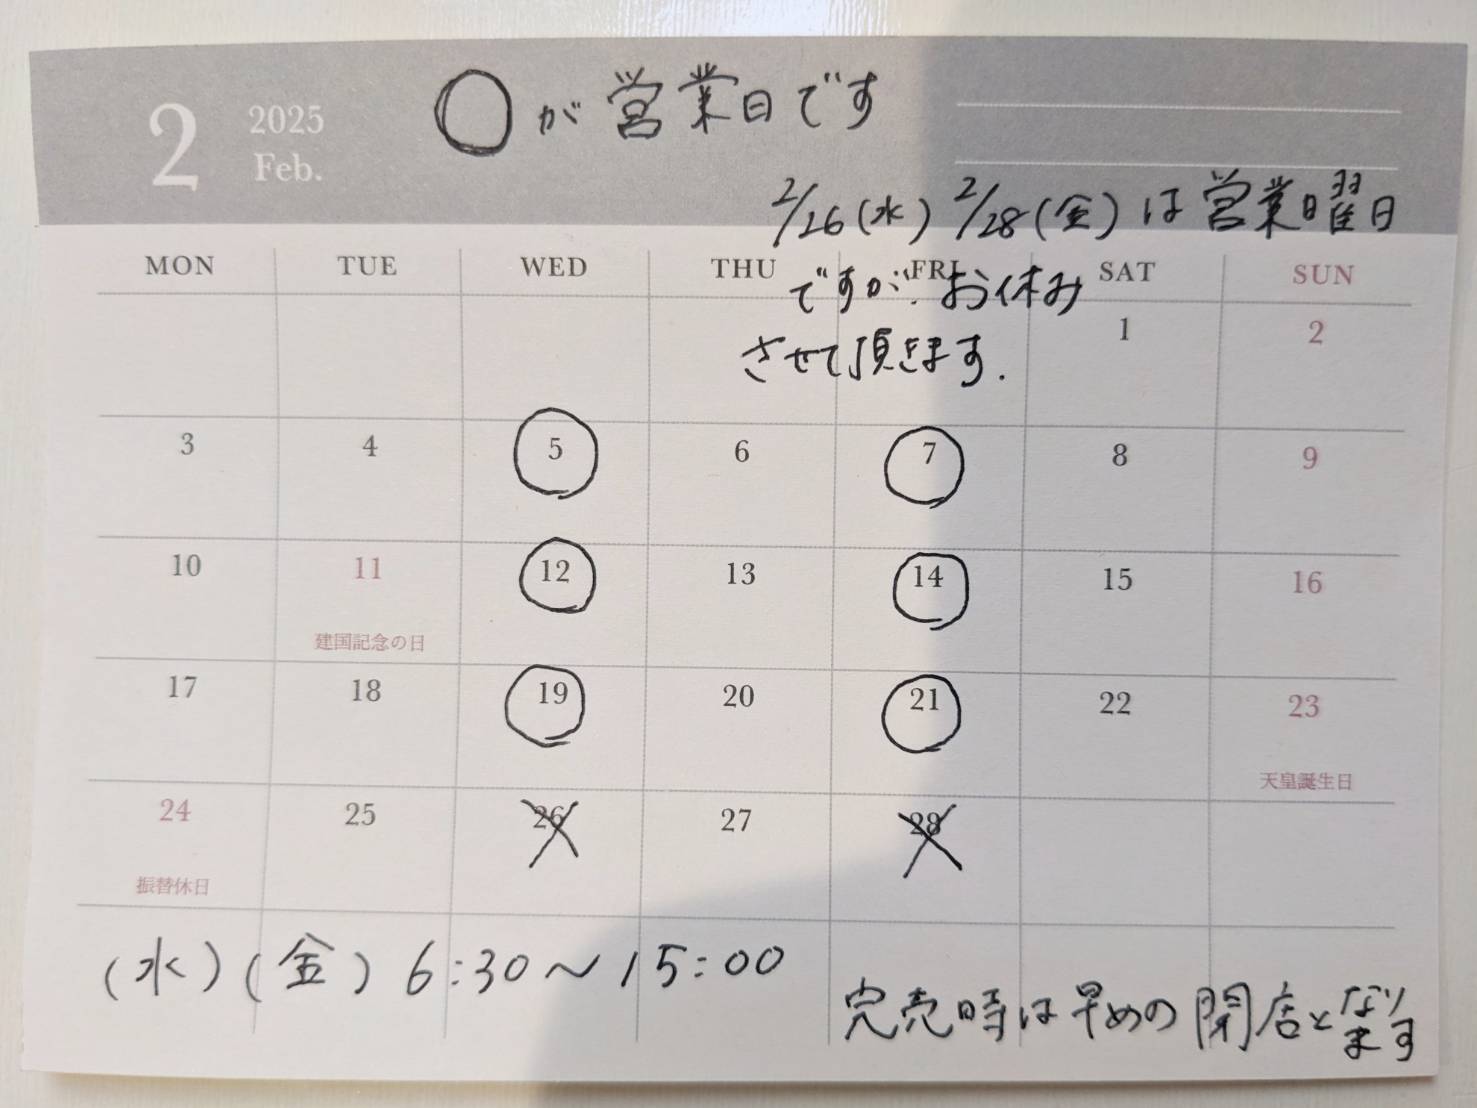 2
2025
Feb.
○が営業日です
2/26(水) 2/28(金)は営業曜日
ですが、お休み
させて頂きます.
MON TUE WED THU FRI SAT SUN
1 2
3 4 5 6 7 8 9
10 11 12 13 14 15 16
建国記念の日
17 18 19 20 21 22 23
天皇誕生日
24 25 26 27 28
振替休日
(水)(金) 6:30〜15:00
完売時は早めの閉店となります